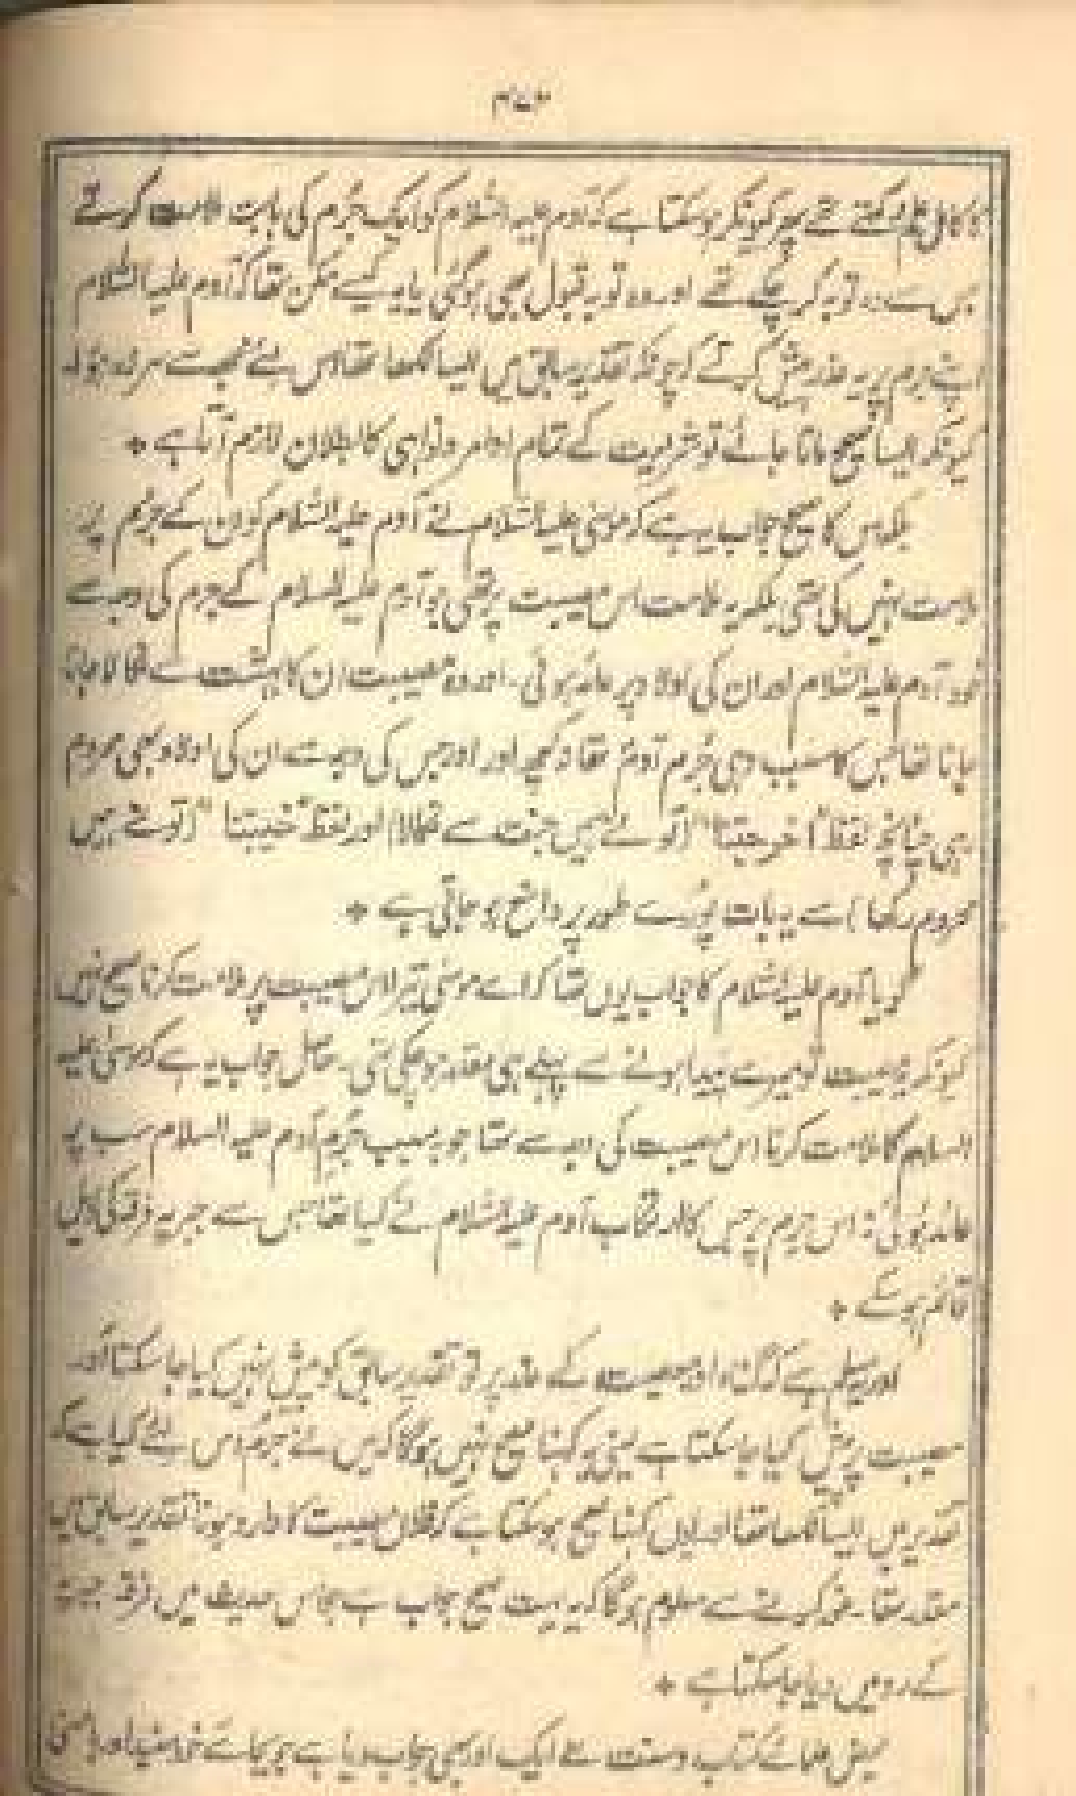 کا کامل علم رکھتے تھے پھر کیونکر ہوسکتا ہے کہ آدم علیہ السلام کو ایک جرم کی بابت ملامت کرتے
جس سے وہ توبہ کر چکے تھے اور وہ توبہ قبول بھی ہوگئی یا یہ کیسے ممکن تھا کہ آدم علیہ السلام
اپنے جرم پر یہ عذر پیش کرتے کہ چونکہ تقدیر سابق میں ایسا لکھا تھا اس لئے مجھ سے سرزد ہوا۔
کیونکہ ایسا صحیح مانا جائے تو شریعت کے تمام اوامر و نواہی کا بطلان لازم آتا ہے +
بلکہ اس کا صحیح جواب یہ ہے کہ موسیٰ علیہ السلام نے آدم علیہ السلام کو ان کے جرم پر
ملامت نہیں کی تھی بلکہ یہ ملامت اس مصیبت پر تھی جو آدم علیہ السلام کے جرم کی وجہ سے
خود آدم علیہ السلام اور ان کی اولاد پر عائد ہوئی۔ اور وہ مصیبت ان کا بہشت سے نکالا جانا
تھا جس کا سبب وہی جرم آدم تھا اور جس کی وجہ سے ان کی اولاد بھی محروم
رہی چنانچہ لفظ "اخرجتنا" (تو نے ہمیں جنت سے نکالا) اور لفظ "خیبتنا" (تو نے ہمیں
محروم رکھا) سے یہ بات پورے طور پر واضح ہو جاتی ہے +
گویا آدم علیہ السلام کا جواب یوں تھا کہ اے موسیٰ تیرا اس مصیبت پر ملامت کرنا صحیح نہیں
کیونکہ یہ مصیبت تو میرے پیدا ہونے سے پہلے ہی مقدر ہو چکی تھی۔ حاصل جواب یہ ہے کہ موسیٰ علیہ
السلام کا ملامت کرنا اس مصیبت کی وجہ سے تھا جو بسبب جرم آدم علیہ السلام سب پر
عائد ہوئی نہ اس جرم پر جس کا ارتکاب آدم علیہ السلام نے کیا تھا جس سے جبریہ فرقہ کی دلیل
قائم ہو سکے +
اور یہ مسلم ہے کہ گناہ اور معصیت کے عذر پر تو تقدیر سابق کو پیش نہیں کیا جا سکتا اور
مصیبت پر پیش کیا جا سکتا ہے یعنی یہ کہنا صحیح نہیں ہوگا کہ میں نے جرم اس لئے کیا ہے کہ
تقدیر میں ایسا لکھا تھا اور یوں کہنا صحیح ہو سکتا ہے کہ فلاں مصیبت کا وارد ہونا تقدیر سابق میں
مقدر تھا۔ غور کرنے سے معلوم ہوگا کہ یہ بہت صحیح جواب ہے جو اس حدیث میں فرقہ جبریہ
کے رد میں دیا جا سکتا ہے +
بعض علمائے کتاب و سنت نے ایک اور بھی جواب دیا ہے جو بجائے خود مفید اور بامعنی